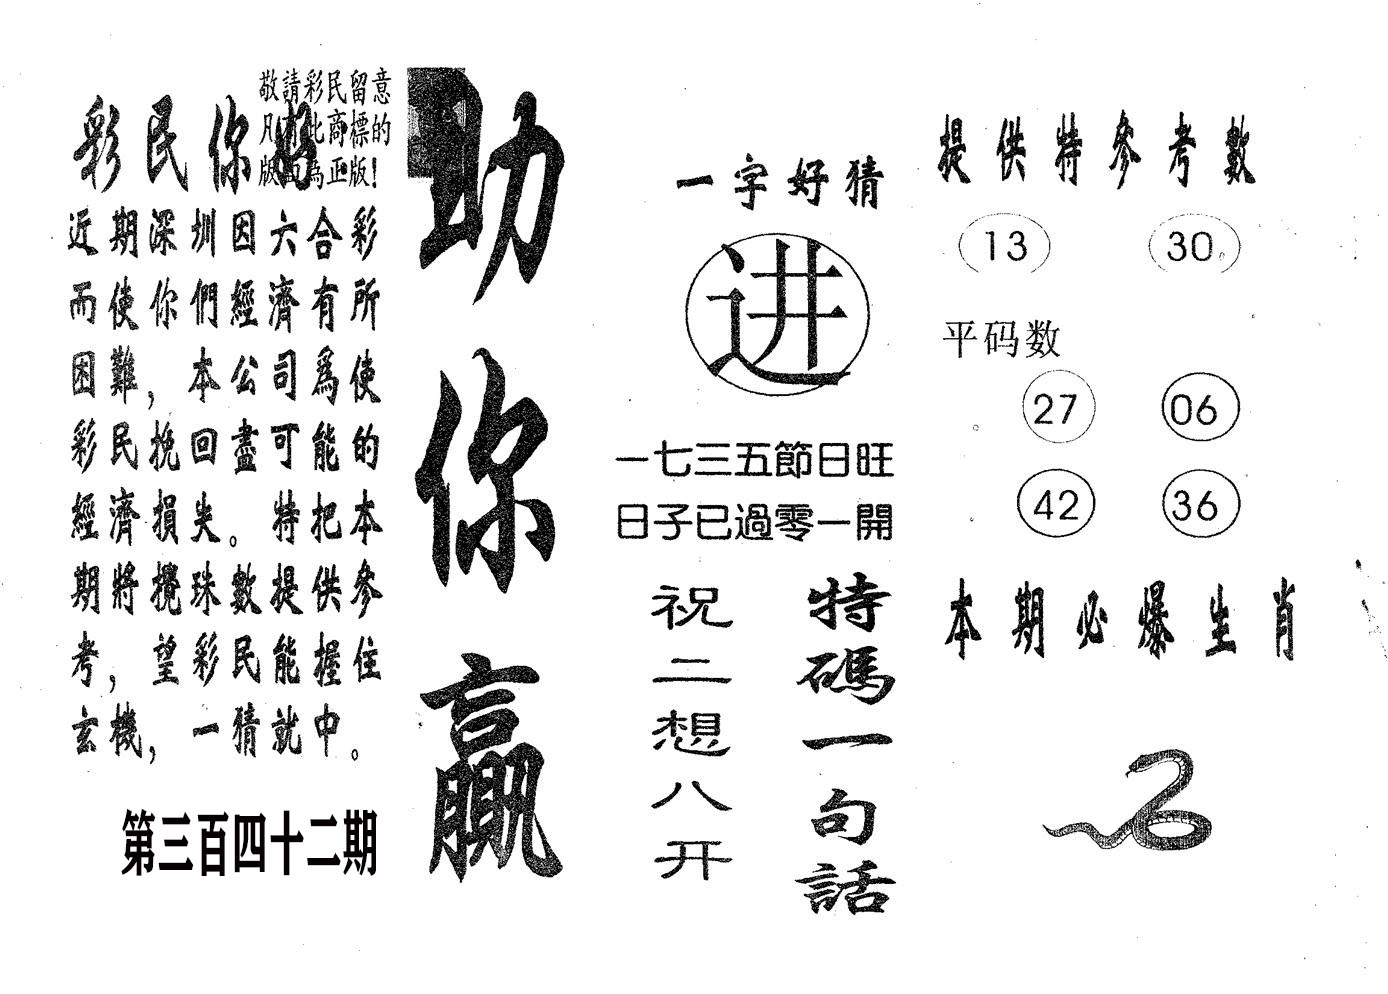 敬請彩民留意
凡有此商標的
版面為正版!
彩民你好
近期深圳因六合彩
而使你們經濟有所
困難，本公司為使
彩民挽回盡可能的
經濟損失。特把本
期將攪珠數提供參
考，望彩民能握住
玄機，一猜就中。
第三百四十二期
助你贏
一字好猜
进
一七三五節日旺
日子已過零一開
特碼一句話
祝二想八开
提供特參考數
13 30
平码数
27 06
42 36
本期必爆生肖